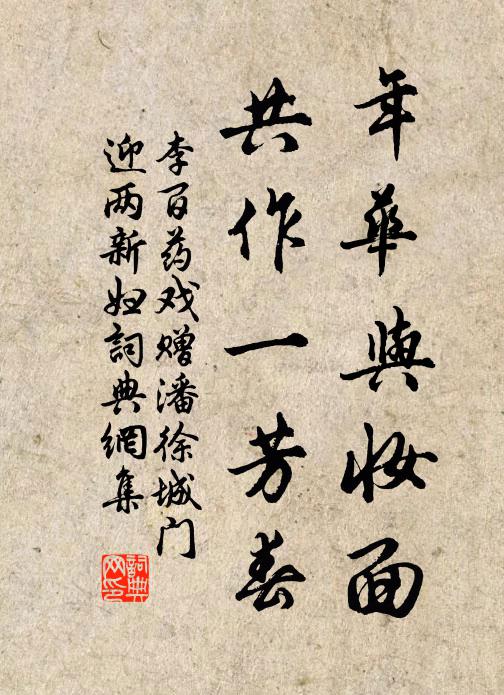 年华與妝面
共作一芳春
李百药戏赠潘徐城门
迎两新妇詞典網集
詞典網印